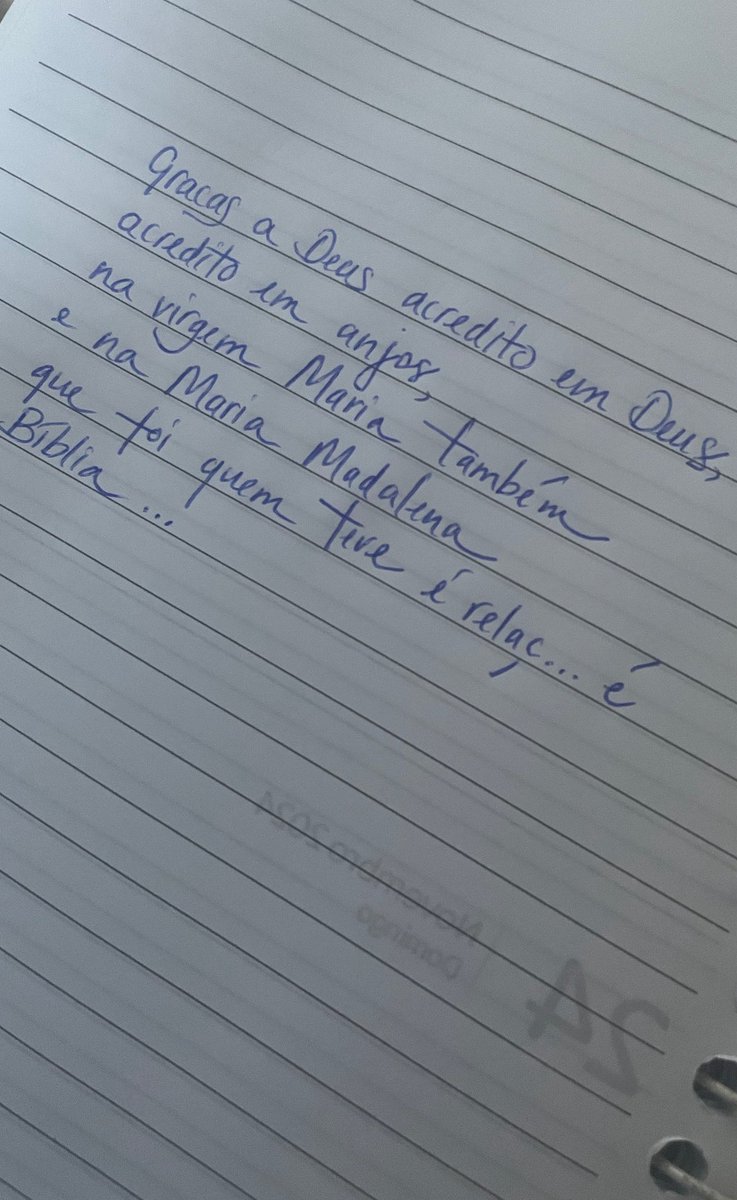 Graças a Deus acredito em Deus,
acredito em anjos,
na virgem Maria também
e na Maria Madalena
que foi quem teve é relaç... é
Bíblia...
Novembro 2024
Domingo
24